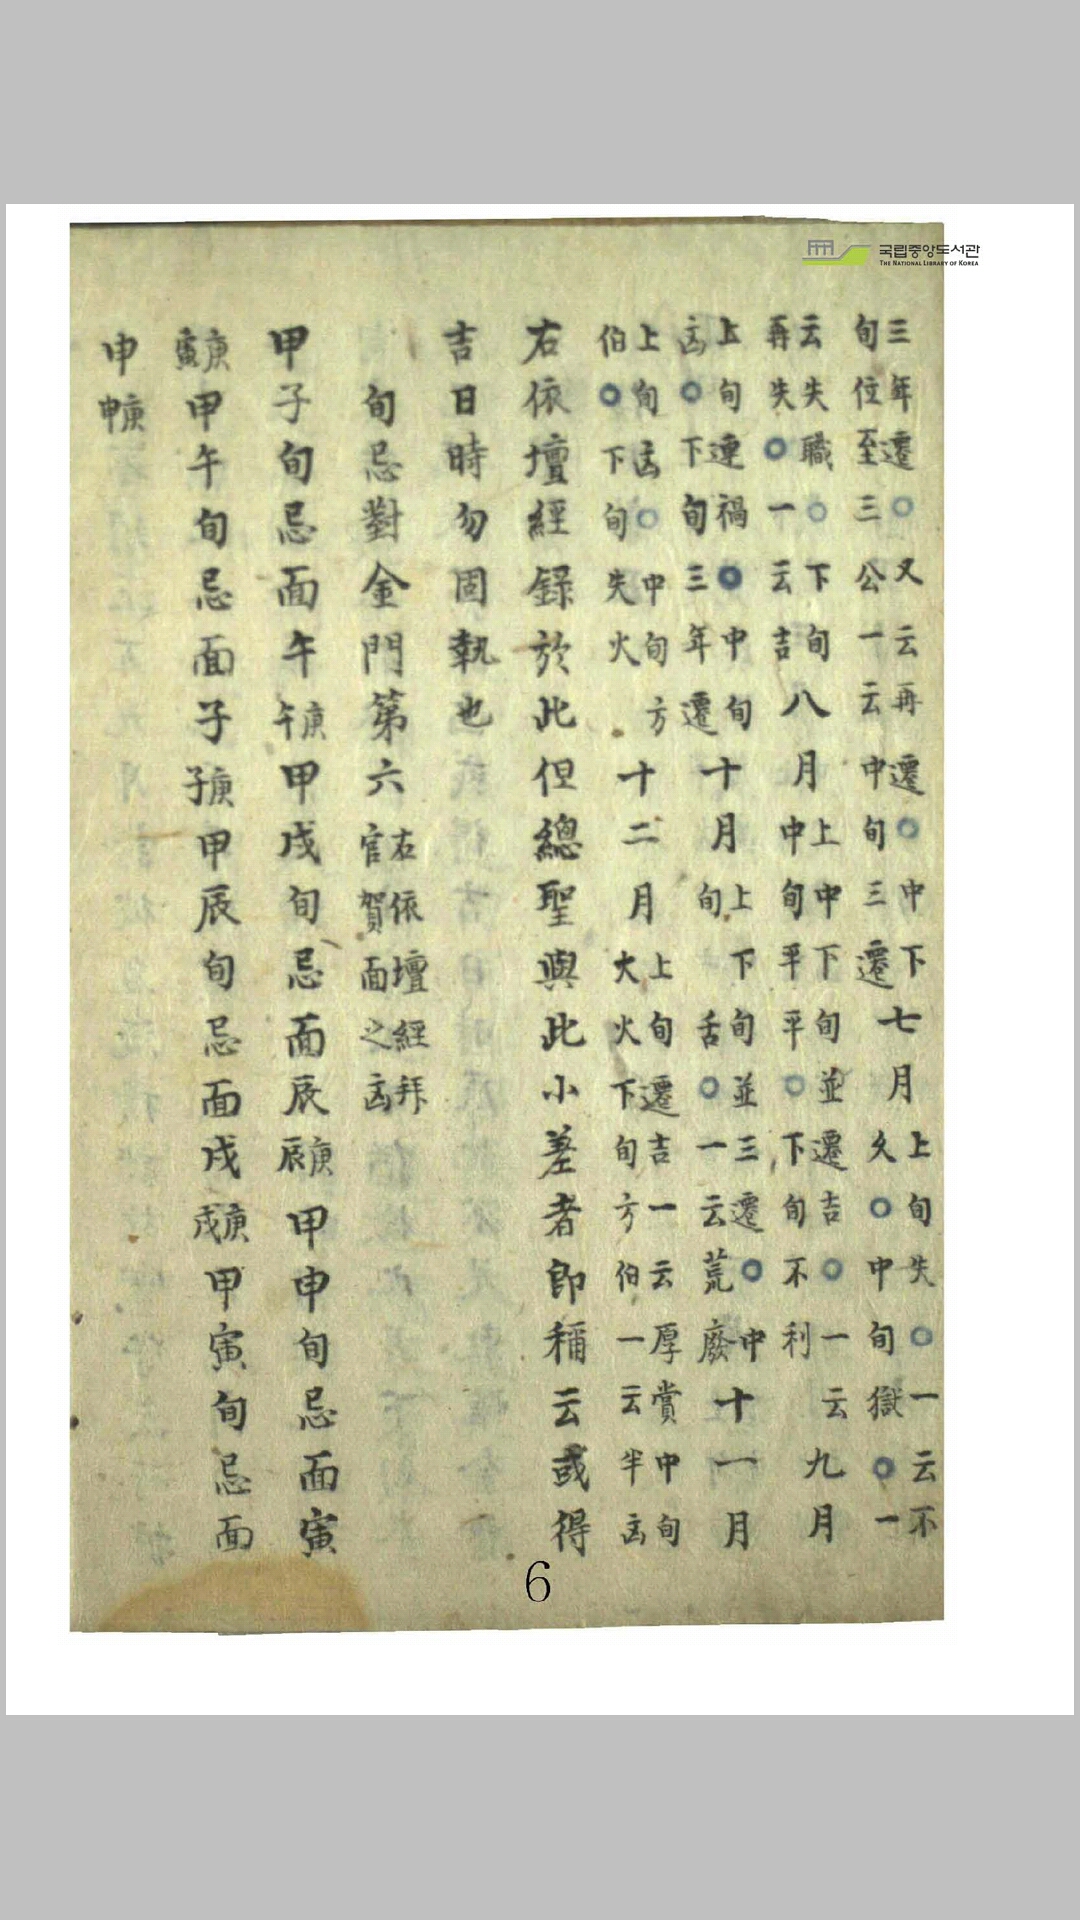 三年遷○又云再遷○中下旬位至三公一云中旬三遷七月上旬失○一云不久○中旬獄○一
云失職○下旬再失○一云吉八月上中下旬並遷吉○一云中旬平平○下旬不利九月
上旬連禍○中旬凶○下旬三年遷十月上下旬並三遷○中旬舌○一云荒廢十一月
上旬凶○中旬方伯○下旬失火十二月上旬遷吉一云厚賞中旬大火下旬方伯一云半凶
右依壇經錄於此但總聖與此小差者即稱云或得
吉日時勿固執也
旬忌對金門第六右依壇經拜官賀面之凶
甲子旬忌面午庚午甲戌旬忌面辰庚辰甲申旬忌面寅
庚寅甲午旬忌面子庚子甲辰旬忌面戌庚戌甲寅旬忌面
申庚申
국립중앙도서관
THE NATIONAL LIBRARY OF KOREA
6